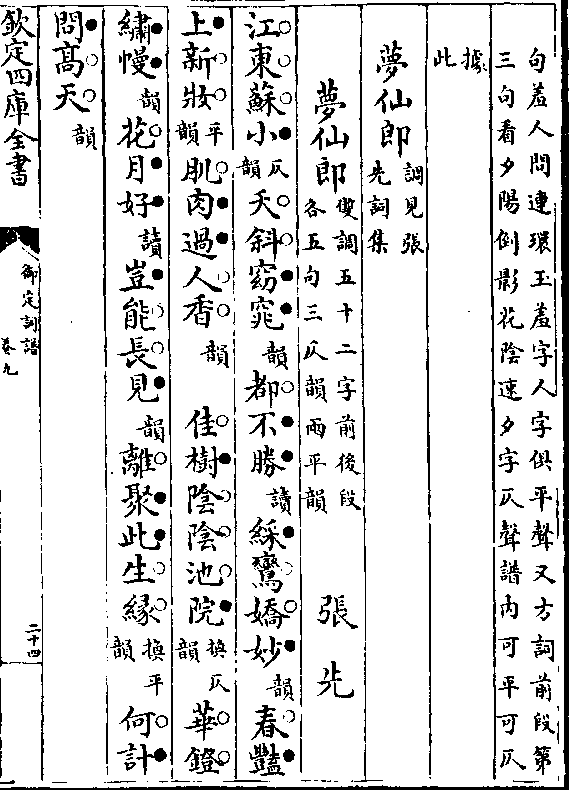 句羞人問連環玉羞字人字俱平聲又方詞前段第
三句看夕陽倒影花陰速夕字仄聲譜内可平可仄
據
此
夢仙郎調見張
先詞集
夢仙郎雙調五十二字前後段
各五句三仄韻兩平韻
張先
江東蘇小仄韻夭斜窈窕韻都不勝讀綵鸞嬌妙韻春豔
上新妝平韻肌肉過人香韻 佳樹陰陰池院換仄韻華鐙
繡幔韻花月好讀豈能長見韻離聚此生緣換平韻何計
問高天韻
欽定四庫全書
御定詞譜
卷九
二十四